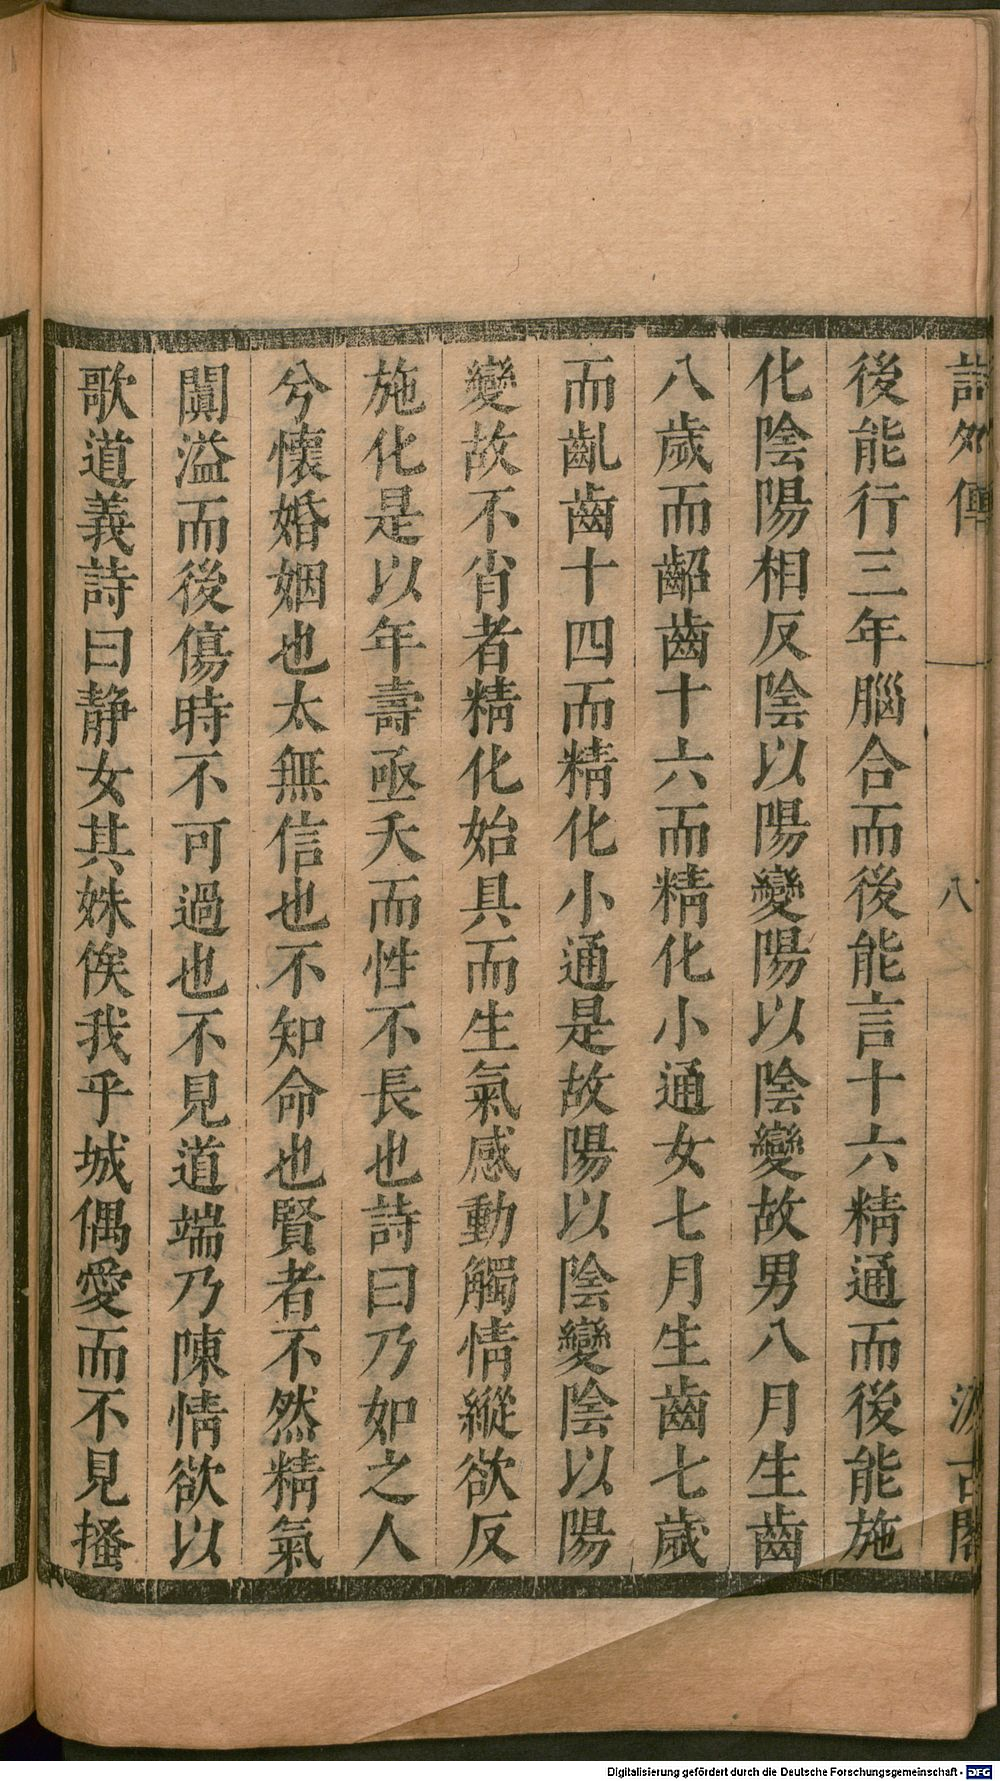 詩外傳 八 汲古閣
後能行三年腦合而後能言十六精通而後能施
化陰陽相反陰以陽變陽以陰變故男八月生齒
八歲而齠齒十六而精化小通女七月生齒七歲
而齓齒十四而精化小通是故陽以陰變陰以陽
變故不肖者精化始具而生氣感動觸情縱欲反
施化是以年壽亟夭而性不長也詩曰乃如之人
兮懷婚姻也太無信也不知命也賢者不然精氣
闐溢而後傷時不可過也不見道端乃陳情欲以
歌道義詩曰静女其姝俟我乎城偶愛而不見搔
Digitalisierung gefördert durch die Deutsche Forschungsgemeinschaft - DFG